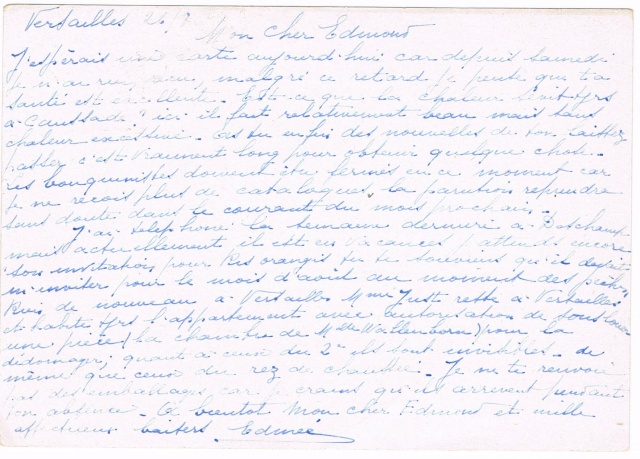 Versailles 26/7
Mon cher Edmond
J'espérais une carte aujourd'hui car depuis samedi
je n'ai rien reçu, malgré ce retard je pense que ta
santé est excellente. Est-ce que la chaleur
à Caussade? ici il fait relativement beau mais sans
chaleur excessive. As tu enfin des nouvelles de ton laissez
passer c'est vraiment long pour obtenir quelque chose.
Les bouquinistes doivent être fermés en ce moment car
je ne reçois plus de catalogues la parution reprendra
sans doute dans le courant du mois prochain.
J'ai téléphoné la semaine dernière à
mais actuellement il est en vacances j'attends encore
son invitation pour Ris orangis tu te souviens qu'il devait
m'inviter pour le mois d'août au moment des
de nouveau à Versailles Mme Just reste à Versailles
et habite l'appartement avec autorisation de
une pièce (la chambre de Melle Wallenborn) pour la
dédomager, quant à ceux du 2e ils sont invisibles de
même que ceux du rez de chaussée. Je ne te renvoie
pas des emballages car je crains qu'ils arrivent pendant
ton absence. A bientot mon cher Edmond et mille
affectueux baisers. Edmée